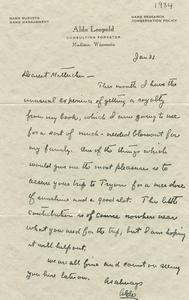 1934
GAME SURVEYS
GAME MANAGEMENT
GAME RESEARCH
CONSERVATION POLICY
Aldo Leopold
CONSULTING FORESTER
Madison, Wisconsin
Jan 31
Dearest Mother —
This month I have the
unusual experience of getting a royalty
from my book, which I am going to use
for a sort of much-needed blowout for
my family. One of the things which
would give me the most pleasure is to
assess your trip to Tryon for a wee dose
of sunshine and a good elst. This little
contribution is of course nowhere near
what you need for the trip, but I am hoping
it will help out.
We are all fine and count on seeing
you here later on.
As always
Aldo